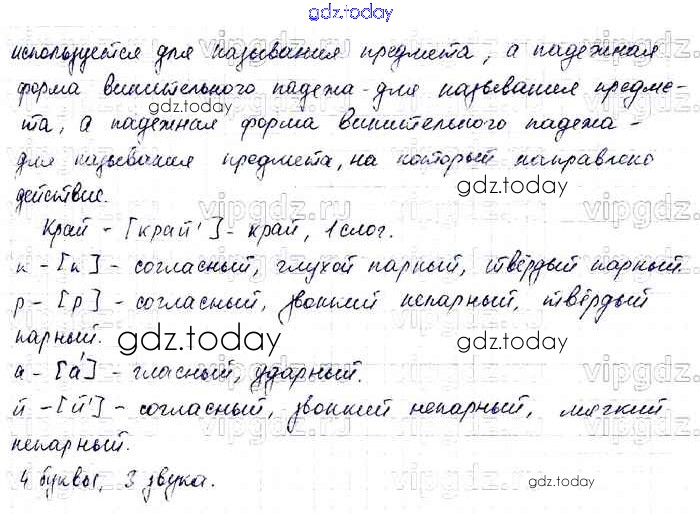 gdz.today
используется для называния предмета, а падежная
форма винительного падежа - для называния предме-
gdz.today
та, а падежная форма винительного падежа -
для называния предмета, на который направлено
действие.
gdz.today
vipgdz.r vipgdz.r vipgdz.r
Край - [край'] - край, 1 слог.
к - [к] - согласный, глухой парный, твёрдый парный.
р - [р] - согласный, звонкий непарный, твёрдый
парный.
gdz.today
а - [а́] - гласный, ударный.
й - [й'] - согласный, звонкий непарный, мягкий
непарный.
4 буквы, 3 звука.
gdz.today